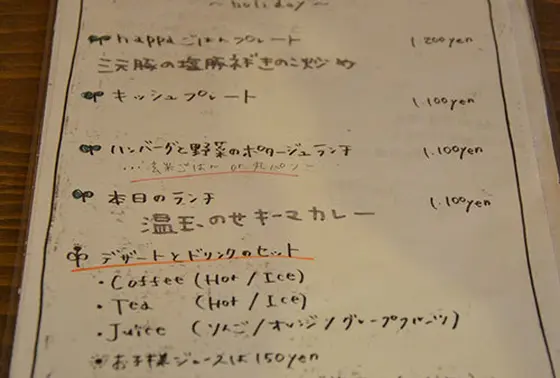 ~ holiday ~
happaごはんプレート 1.200yen
三元豚の塩豚ねぎきのこ炒め
キッシュプレート 1.100yen
ハンバーグと野菜のポタージュランチ 1.100yen
・・・玄米ごはん or 丸パン
本日のランチ 1.100yen
温玉のせキーマカレー
デザートとドリンクのセット
・Coffee (Hot / Ice)
・Tea (Hot / Ice)
・Juice (りんご / オレンジ / グレープフルーツ)
お子様ジュースは150yen